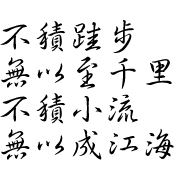 不積跬步
無以至千里
不積小流
無以成江海